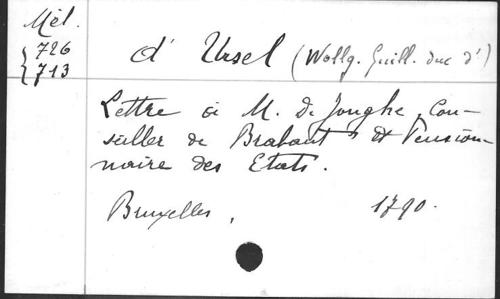 Mél.
726
713
d' Ursel (Wolfg. Guill. duc d')
Lettre à M. De Jonghe, Con-
seiller de Brabant et Pension-
naire des Etats.
Bruxelles, 1790.